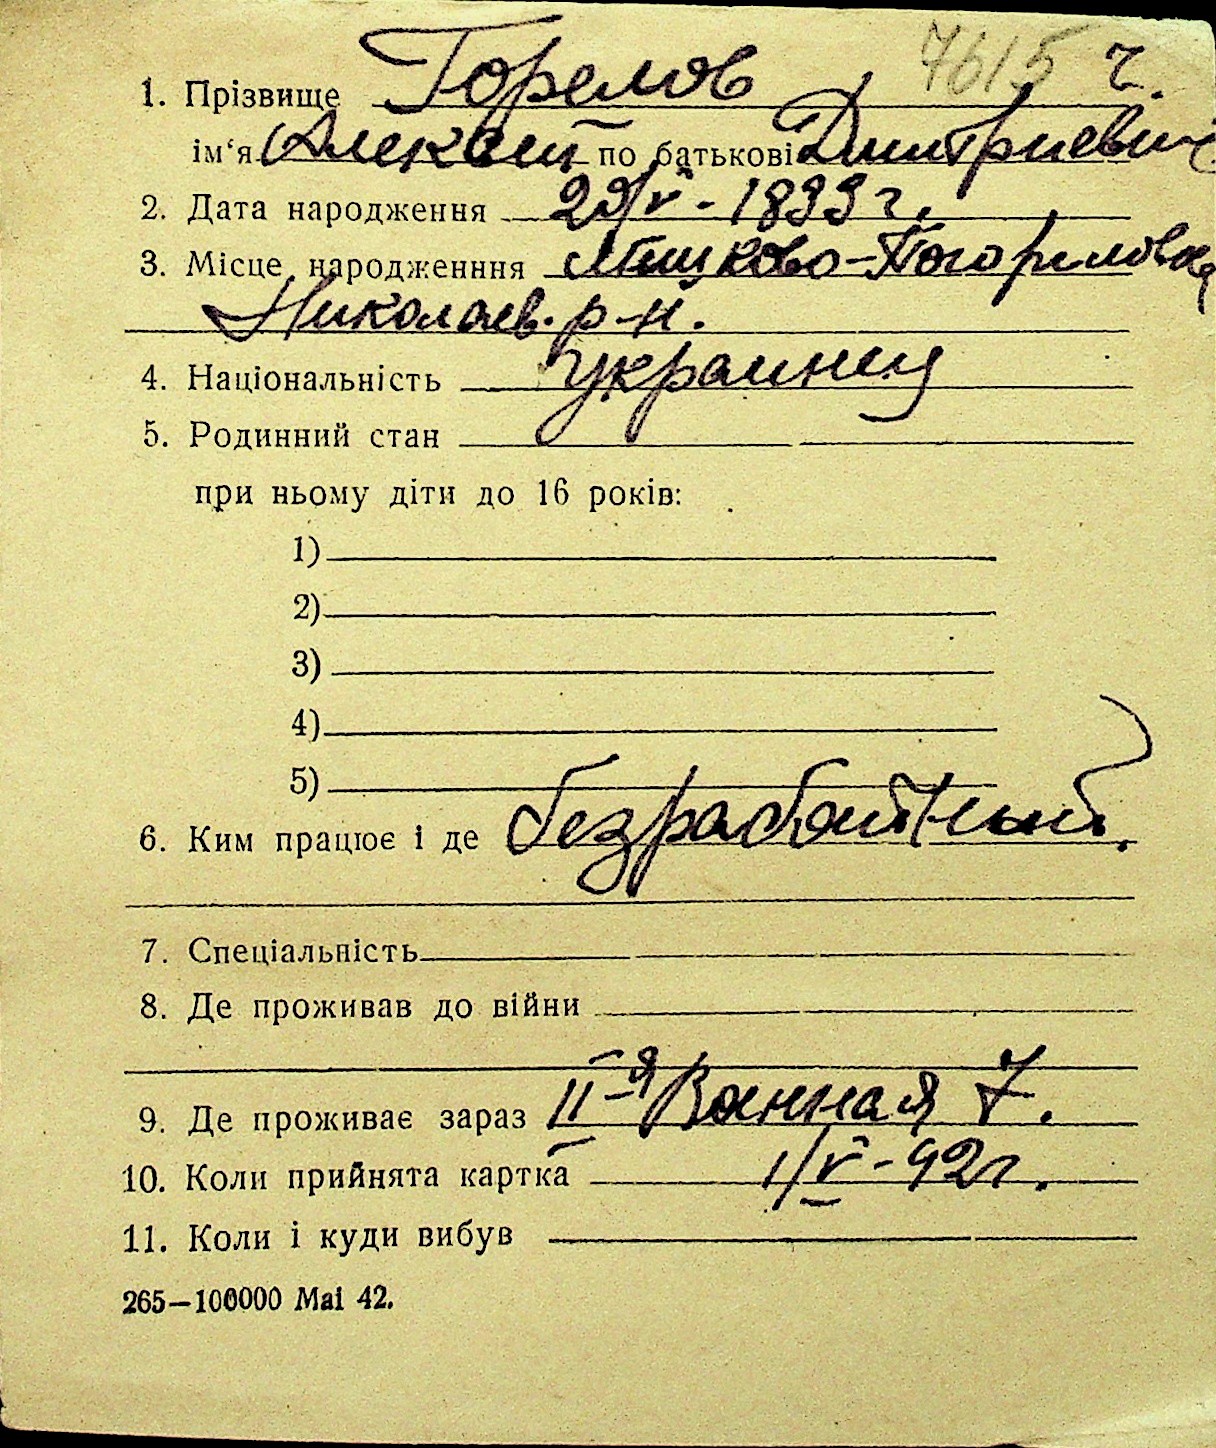 7615 ч.
1. Прізвище Горелов
ім‘я Алексей по батькові Дмитриевич
2. Дата народження 29/V - 1899 г.
3. Місце народженння Мешково-Погореловка
Николаев. р-н.
4. Національність украинец
5. Родинний стан
при ньому діти до 16 років:
1)
2)
3)
4)
5)
6. Ким працює і де безработный.
7. Спеціальність
8. Де проживав до війни
9. Де проживає зараз II-я Военная 7.
10. Коли прийнята картка 1/V - 42 г.
11. Коли і куди вибув
265—100000 Mai 42.